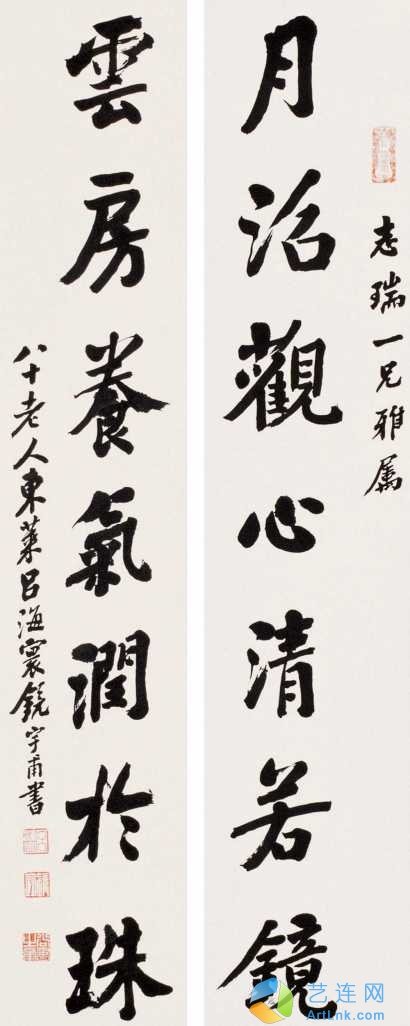 志瑞一兄雅属
月沼觀心清若鏡
雲房養氣潤於珠
八十老人東萊呂海寰鏡宇甫書
艺连网
ArtLink.com